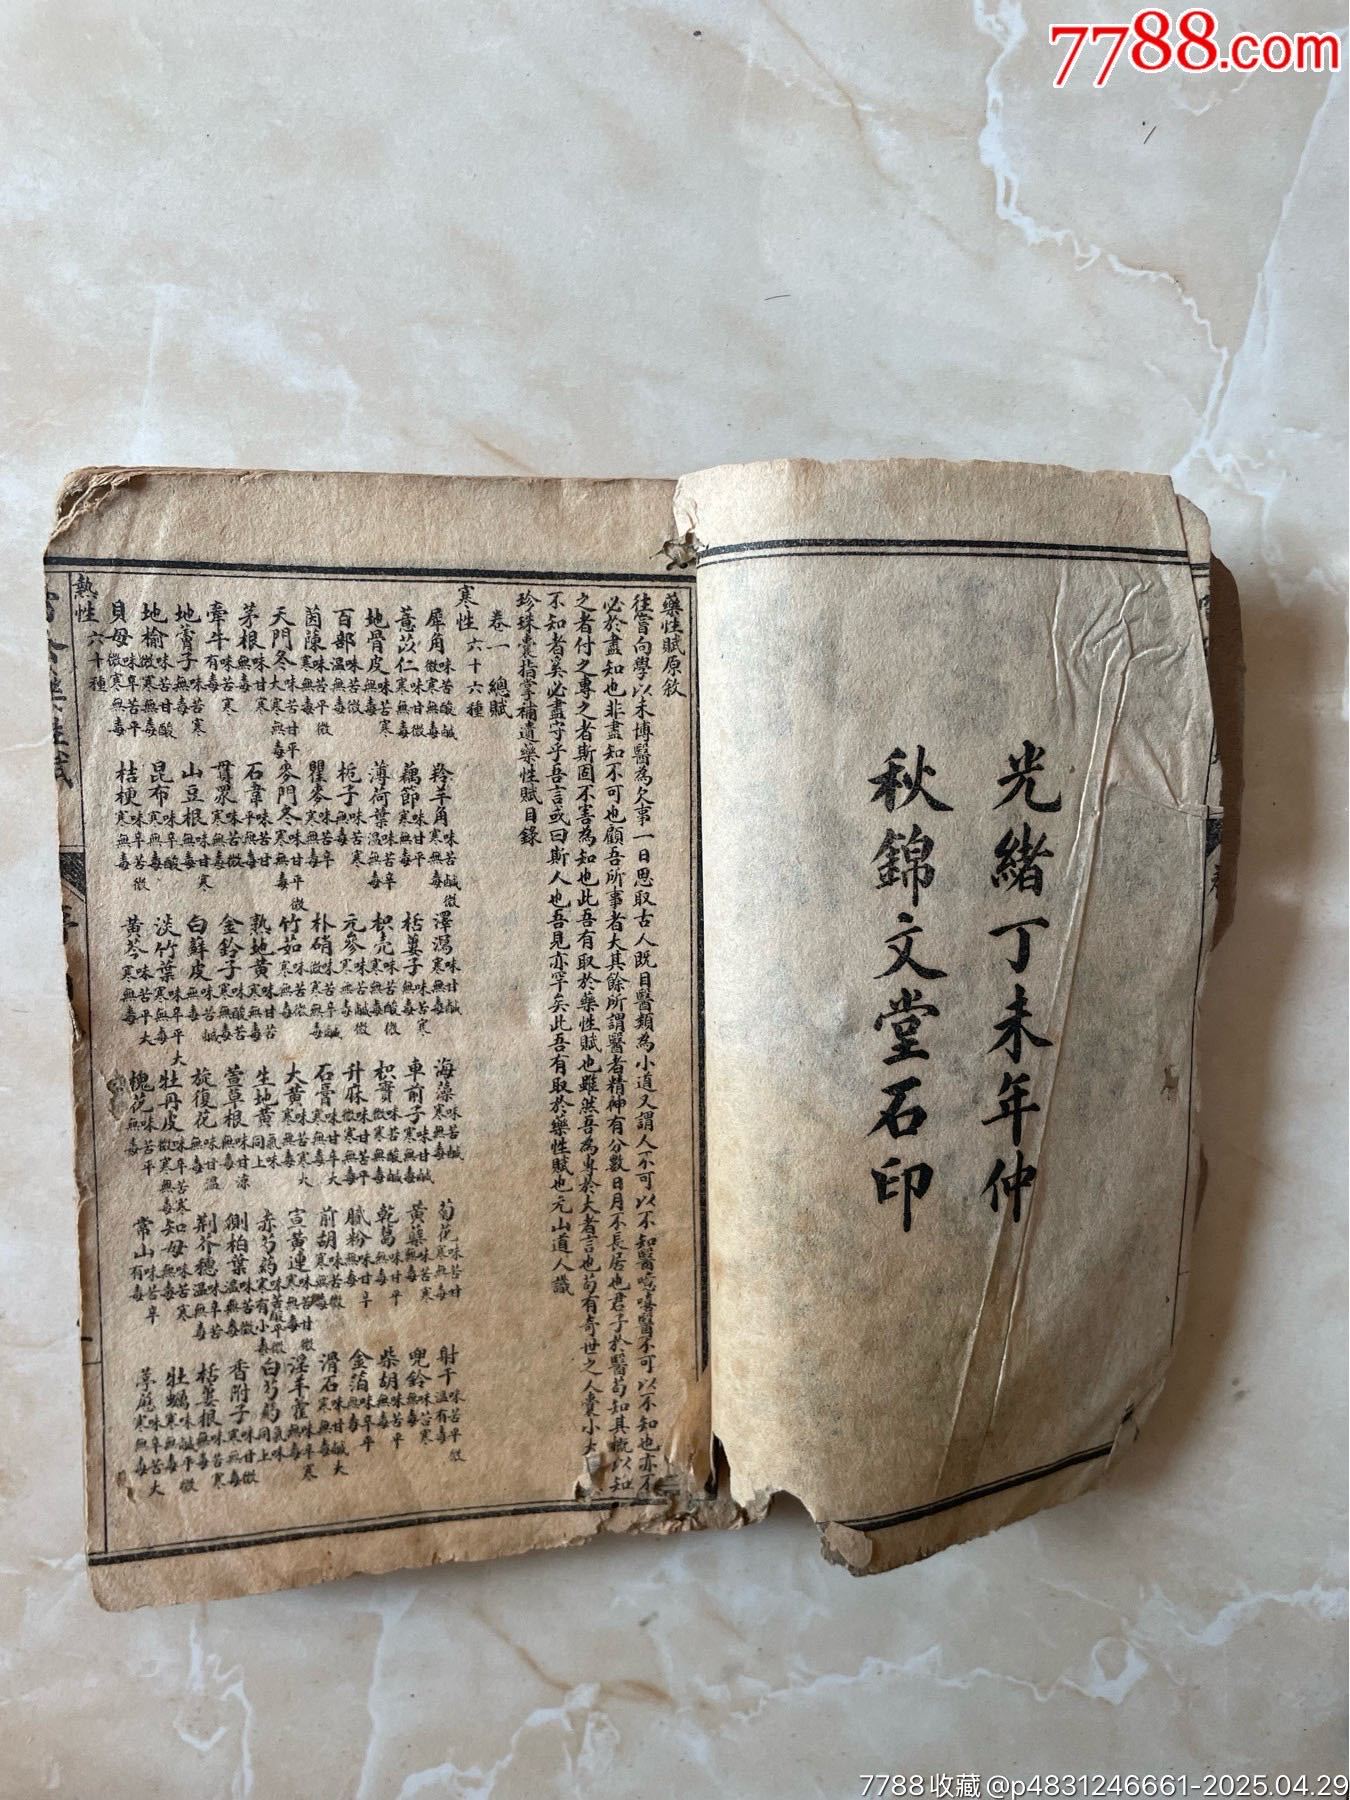 7788.com
光緒丁未年仲
秋錦文堂石印
藥性賦原敘
往嘗向學以未博醫為欠事一日思取古人既目醫類為小道又謂人不可以不知醫噫嘻醫不可以不知也亦不
必於盡知也非盡知不可也顧吾所事者大其餘所謂醫者精神有分數日月不長居也君子於醫苟知其概以知
之者付之專之者斯固不害為知也此吾有取於藥性賦也雖然吾為專於大者言也苟有奇世之人囊小大
不知者奚必盡守乎吾言或曰斯人也吾見亦罕矣此吾有取於藥性賦也元山道人識
珍珠囊指掌補遺藥性賦目錄
卷一 總賦
寒性六十六種
犀角味苦酸鹹微寒無毒 羚羊角味苦鹹微寒無毒 澤瀉味甘鹹寒無毒 海藻味苦鹹寒無毒 菊花味苦甘寒無毒 射干味苦平微溫有毒
薏苡仁味甘微寒無毒 藕節味甘平無毒 栝蔞子味苦寒無毒 車前子味甘鹹寒無毒 黃蘗味苦寒無毒 兜鈴味苦寒無毒
地骨皮味苦寒無毒 薄荷葉味苦辛溫無毒 枳壳味苦酸微寒無毒 枳實味苦酸鹹微寒無毒 乾葛味甘平無毒 柴胡味苦平無毒
百部味苦微溫無毒 梔子味苦寒無毒 元參味苦鹹微寒無毒 升麻味甘苦平微寒無毒 膩粉味甘辛無毒 金箔味辛平無毒
茵陳味苦平微寒無毒 瞿麥味苦辛寒無毒 朴硝味苦辛鹹寒無毒 石膏味甘辛大寒無毒 前胡味苦微寒無毒 滑石味甘鹹大寒無毒
天門冬味苦甘平大寒無毒 麥門冬味甘平微寒無毒 竹茹味苦微寒無毒 大黃味苦寒大寒無毒 宣黃連味苦甘微寒無毒 淫羊藿味辛寒無毒
茅根味甘寒無毒 石韋味苦甘平無毒 熟地黃味甘苦寒無毒 生地黃氣味同上 赤芍藥味苦酸平微寒有小毒 白芍藥氣味同上
牽牛味苦寒有毒 貫眾味苦微寒無毒 金鈴子味酸苦寒無毒 萱草根味甘涼無毒 側柏葉味苦微溫無毒 香附子味甘微寒無毒
地膚子味苦寒無毒 山豆根味甘寒無毒 白蘚皮味苦鹹寒無毒 旋復花味甘溫無毒 荆芥穗味辛苦溫無毒 栝蔞根味苦寒無毒
地榆味苦甘酸微寒無毒 昆布味辛酸寒無毒 淡竹葉味辛平大寒無毒 牡丹皮味辛苦寒微寒無毒 知母味苦寒無毒 牡蠣味鹹平微寒無毒
貝母味辛苦平微寒無毒 桔梗味辛苦微寒無毒 黃芩味苦平大寒無毒 槐花味苦平無毒 常山味苦辛有毒 葶藶味辛苦大寒無毒
熱性六十種
7788收藏@p4831246661-2025.04.29